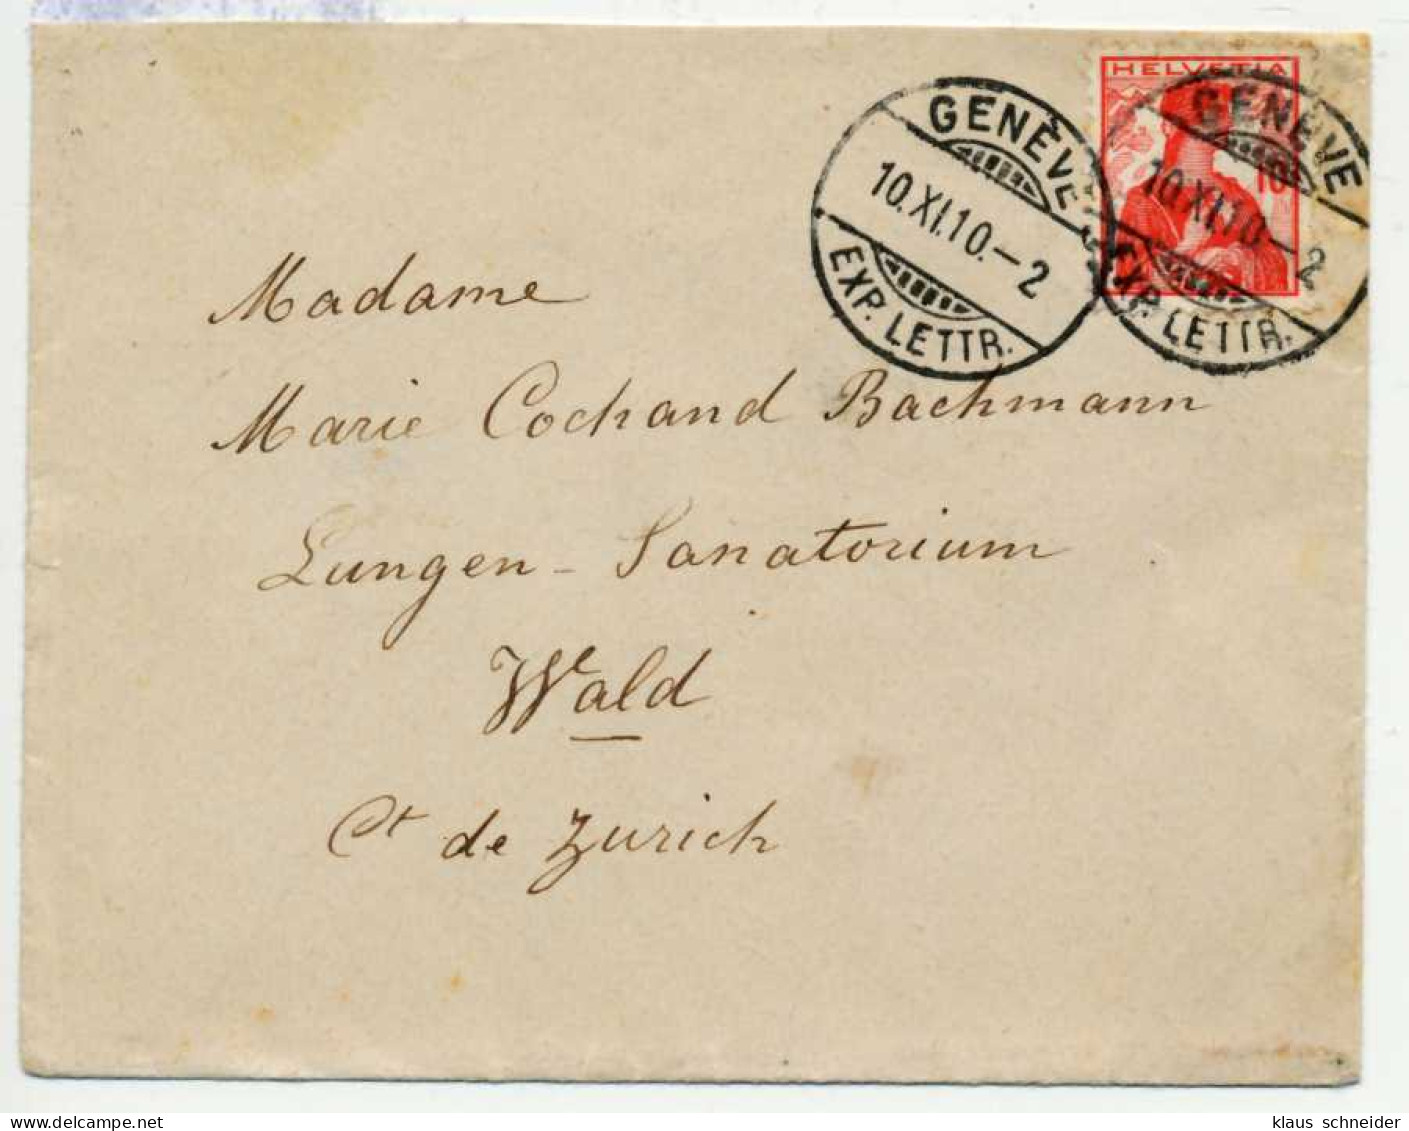 HELVETIA
10
GENÈVE
10.XI.10.–2
EXP. LETTR.
GENÈVE
10.XI.10–2
EXP. LETTR.
Madame
Marie Cochand Bachmann
Lungen-Sanatorium
Wald
Ct de Zurich
klaus schneider